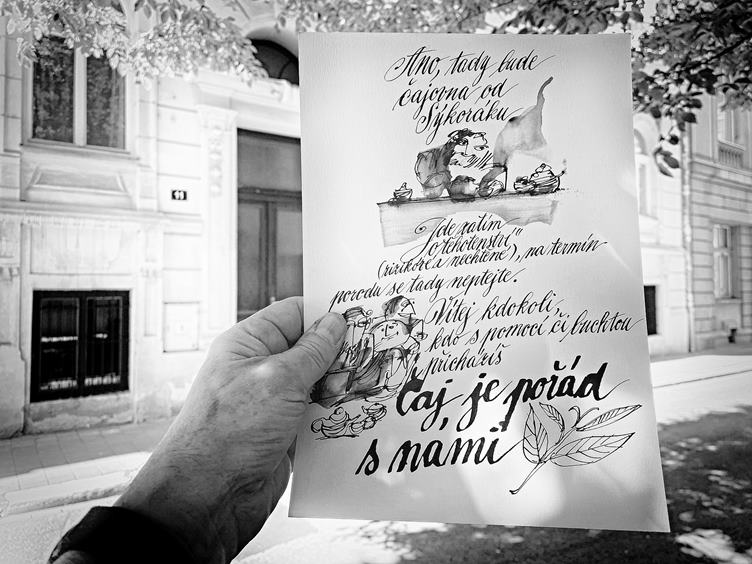 Ano, tady bude
čajovna od
Sýkoráku
11
Jde zatím
o "těhotenství"
(rizikové a nechtěné), na termín
porodu se tady neptejte.
Vítej kdokoli,
kdo s pomocí či buchtou
přicházíš
Čaj, je pořád
s námi